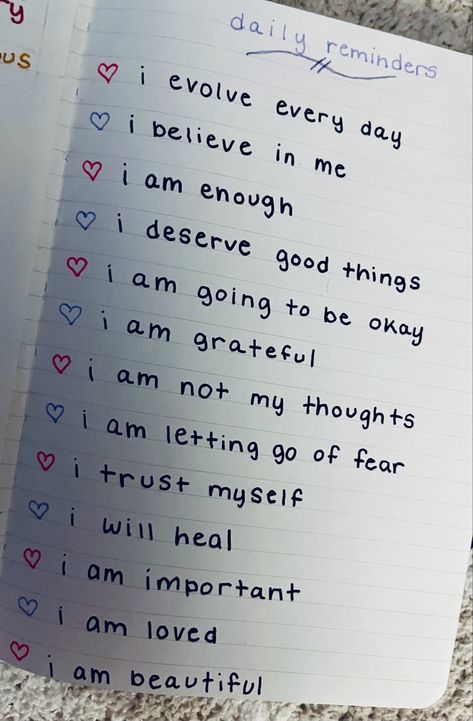 y
ous
daily reminders
i evolve every day
i believe in me
i am enough
i deserve good things
i am going to be okay
i am grateful
i am not my thoughts
i am letting go of fear
i trust myself
i will heal
i am important
i am loved
i am beautiful